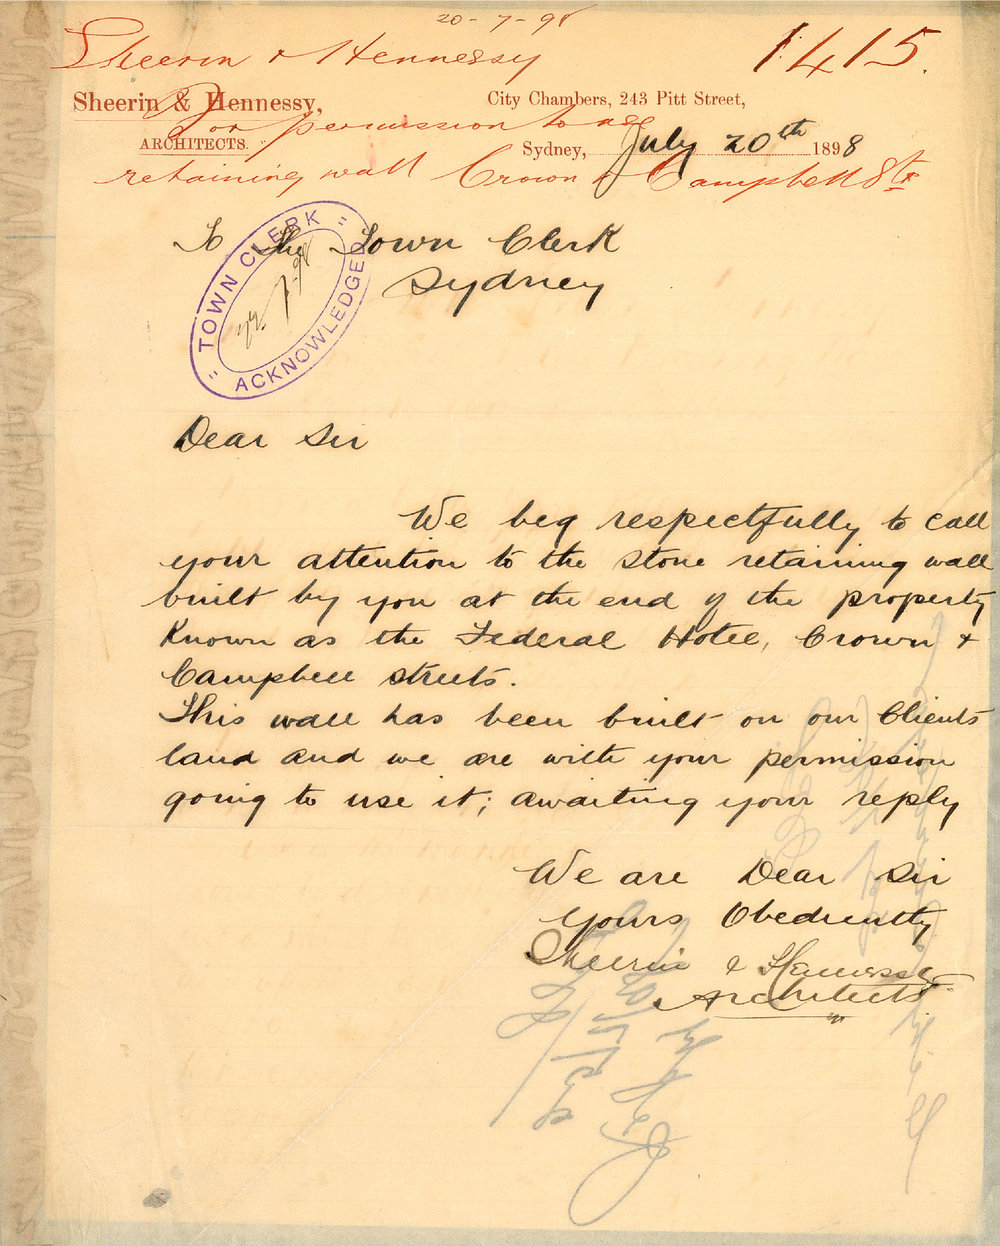 20-7-98
Sheerin & Hennessy
1415.
Sheerin & Hennessy,
ARCHITECTS.
City Chambers, 243 Pitt Street,
for permission to use
Sydney, July 20th 1898
retaining wall Crown & Campbell Sts
To The Town Clerk
Sydney
TOWN CLERK
ACKNOWLEDGED
Dear Sir
We beg respectfully to call
your attention to the stone retaining wall
built by you at the end of the property
Known as the Federal Hotel, Crown &
Campbell streets.
This wall has been built on our Clients
land and we are with your permission
going to use it; awaiting your reply
We are Dear Sir
Yours Obediently
Sheerin & Hennessy
Architects